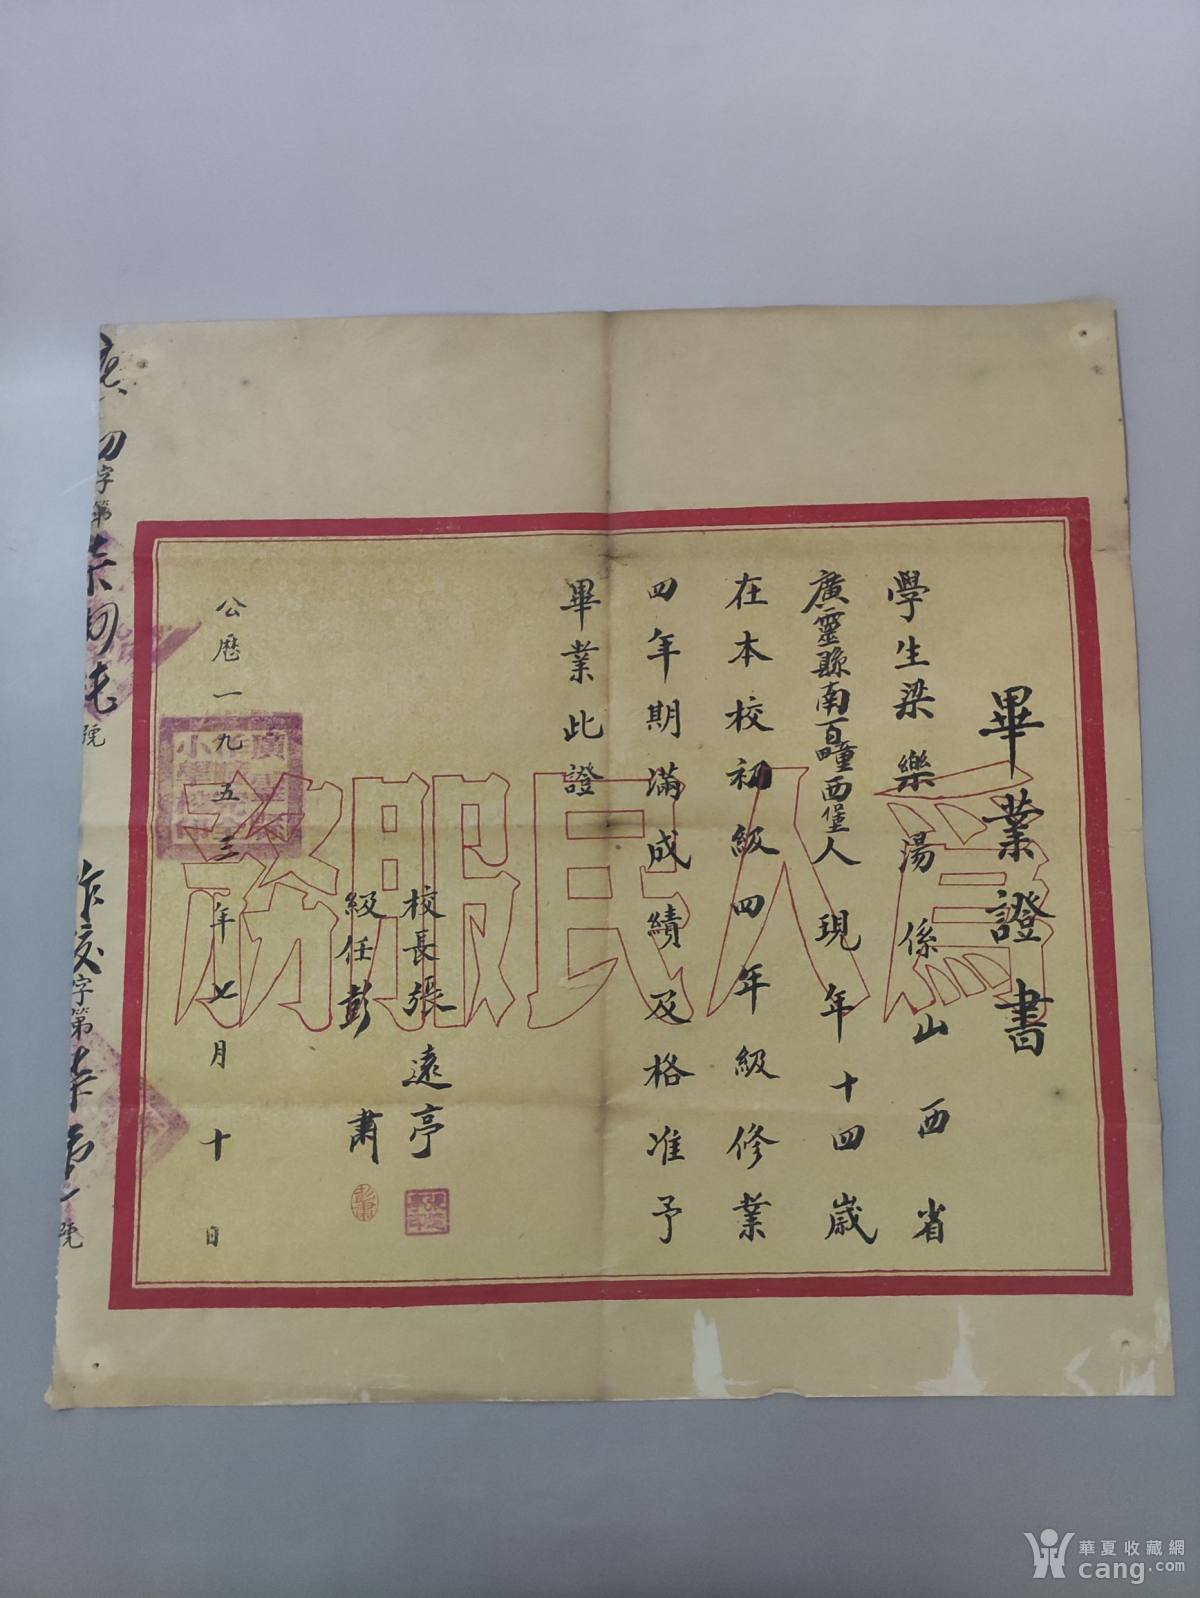 畢業證書
學生梁樂湯係山西省
廣靈縣南百疃西堡人現年十四歲
在本校初級四年級修業
四年期滿成績及格准予
畢業此證
校長張遠亭
級任彭肅
公歷一九五三年七月十日
為人民服務
字第
號
字第
號
彭肅
華夏收藏網
cang.com